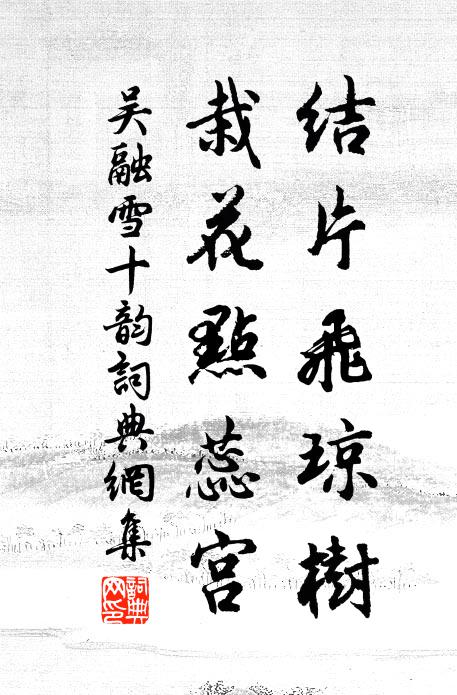 结片飛琼樹
栽花點蕊宫
吴融雪十韵詞典網集
詞典网印